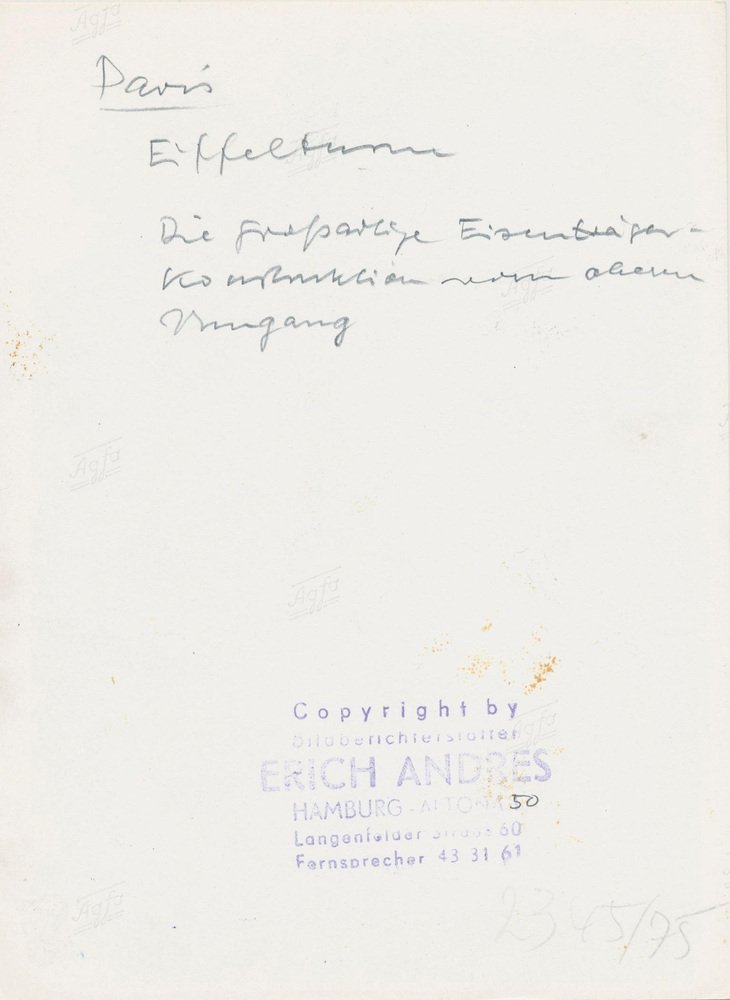 Agfa
Paris
Eiffelturm
Die großartige Eisenträger-
Konstruktion vom oberen
Umgang
Agfa
Agfa
Copyright by
Bildberichterstatter
Agfa
ERICH ANDRES
HAMBURG-ALTONA 50
Langenfelder Straße 60
Fernsprecher 43 31 61
Agfa
2345/75